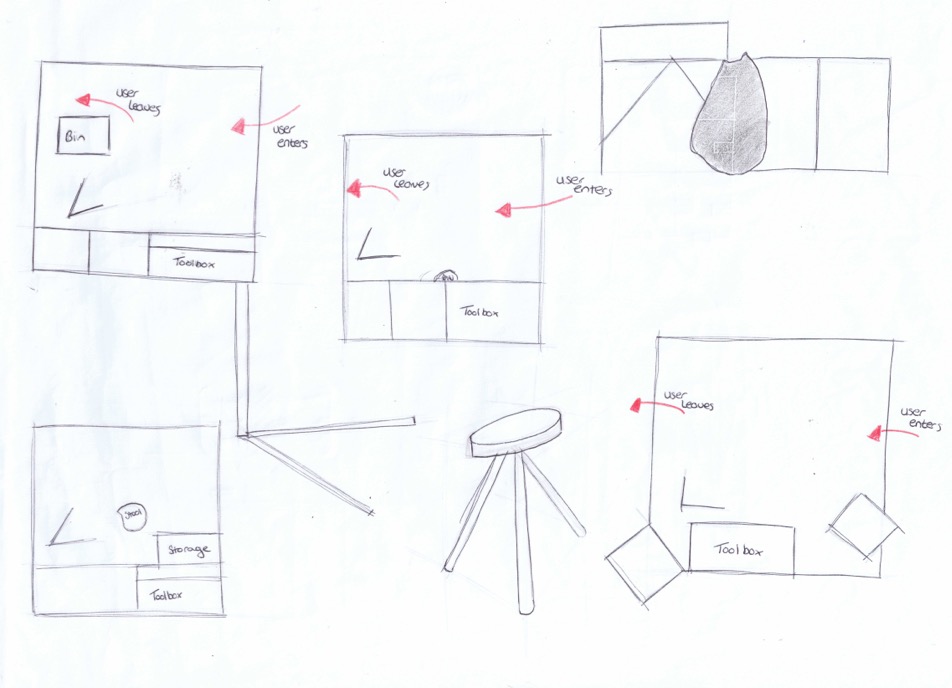 user
leaves
Bin
user
enters
Toolbox
user
leaves
user
enters
Toolbox
Stool
Storage
Toolbox
user
leaves
user
enters
Toolbox